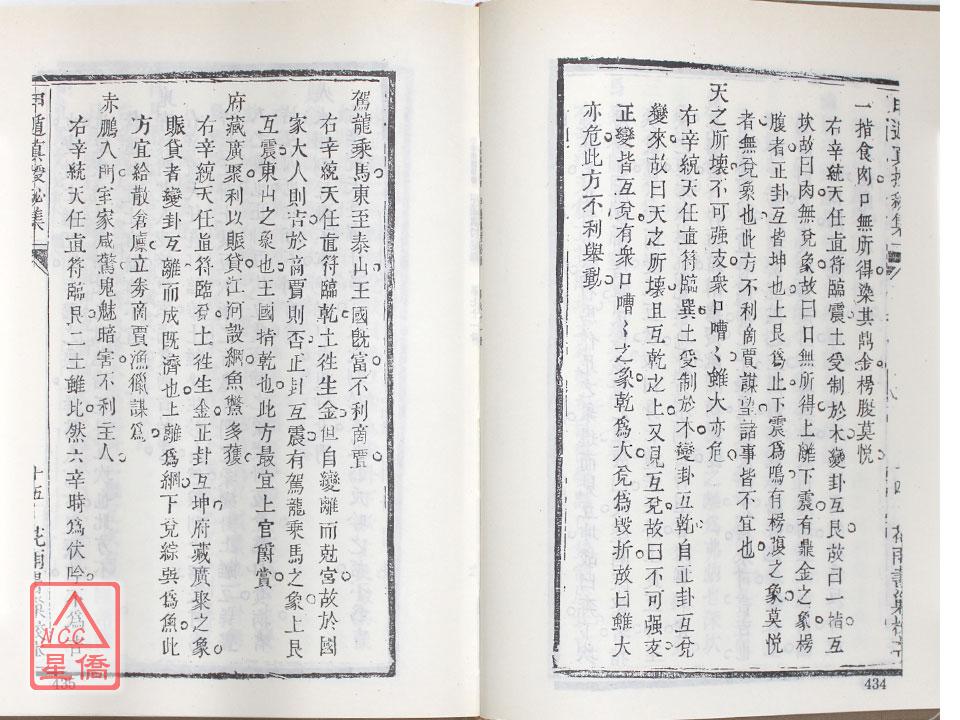 一指食肉口無所得染其鼎金楞腹莫悦
右辛統天任直符臨震土受制於木變卦互艮故曰一指互
坎故曰肉無兌象故曰口無所得上離下震有鼎金之象楞
腹者正卦互皆坤也上艮爲止下震爲鳴有楞腹之象莫悦
者無兌象也此方不利商賈謀望諸事皆不宜也
天之所壞不可强支衆口嘈〻雖大亦危
右辛統天任直符臨巽土受制於木變卦互乾自正卦互兌
變來故曰天之所壞且互乾之上又見互兌故曰不可强支
正變皆互兌有衆口嘈〻之象乾爲大兌爲毁折故曰雖大
亦危此方不利舉動
434
駕龍乘馬東至泰山王國旣富不利商賈
右辛統天任直符臨乾土徃生金但自變離而尅宮故於國
家大人則吉於商賈則否正卦互震有駕龍乘馬之象上艮
互震東山之象也王國指乾也此方最宜上官爵賞
府藏廣聚利以賑貸江河設網魚鱉多獲
右辛統天任直符臨兌土徃生金正卦互坤府藏廣聚之象
賑貸者變卦互離而成既濟也上離爲網下兌綜巽爲魚此
方宜給散倉廩立劵商賈漁獵謀爲
赤鵬入門室家咸驚鬼魅暗害不利主人
右辛統天任直符臨艮二土雖比然六辛時爲伏吟
甲遁眞授秘集
十五
435
NCC
星僑